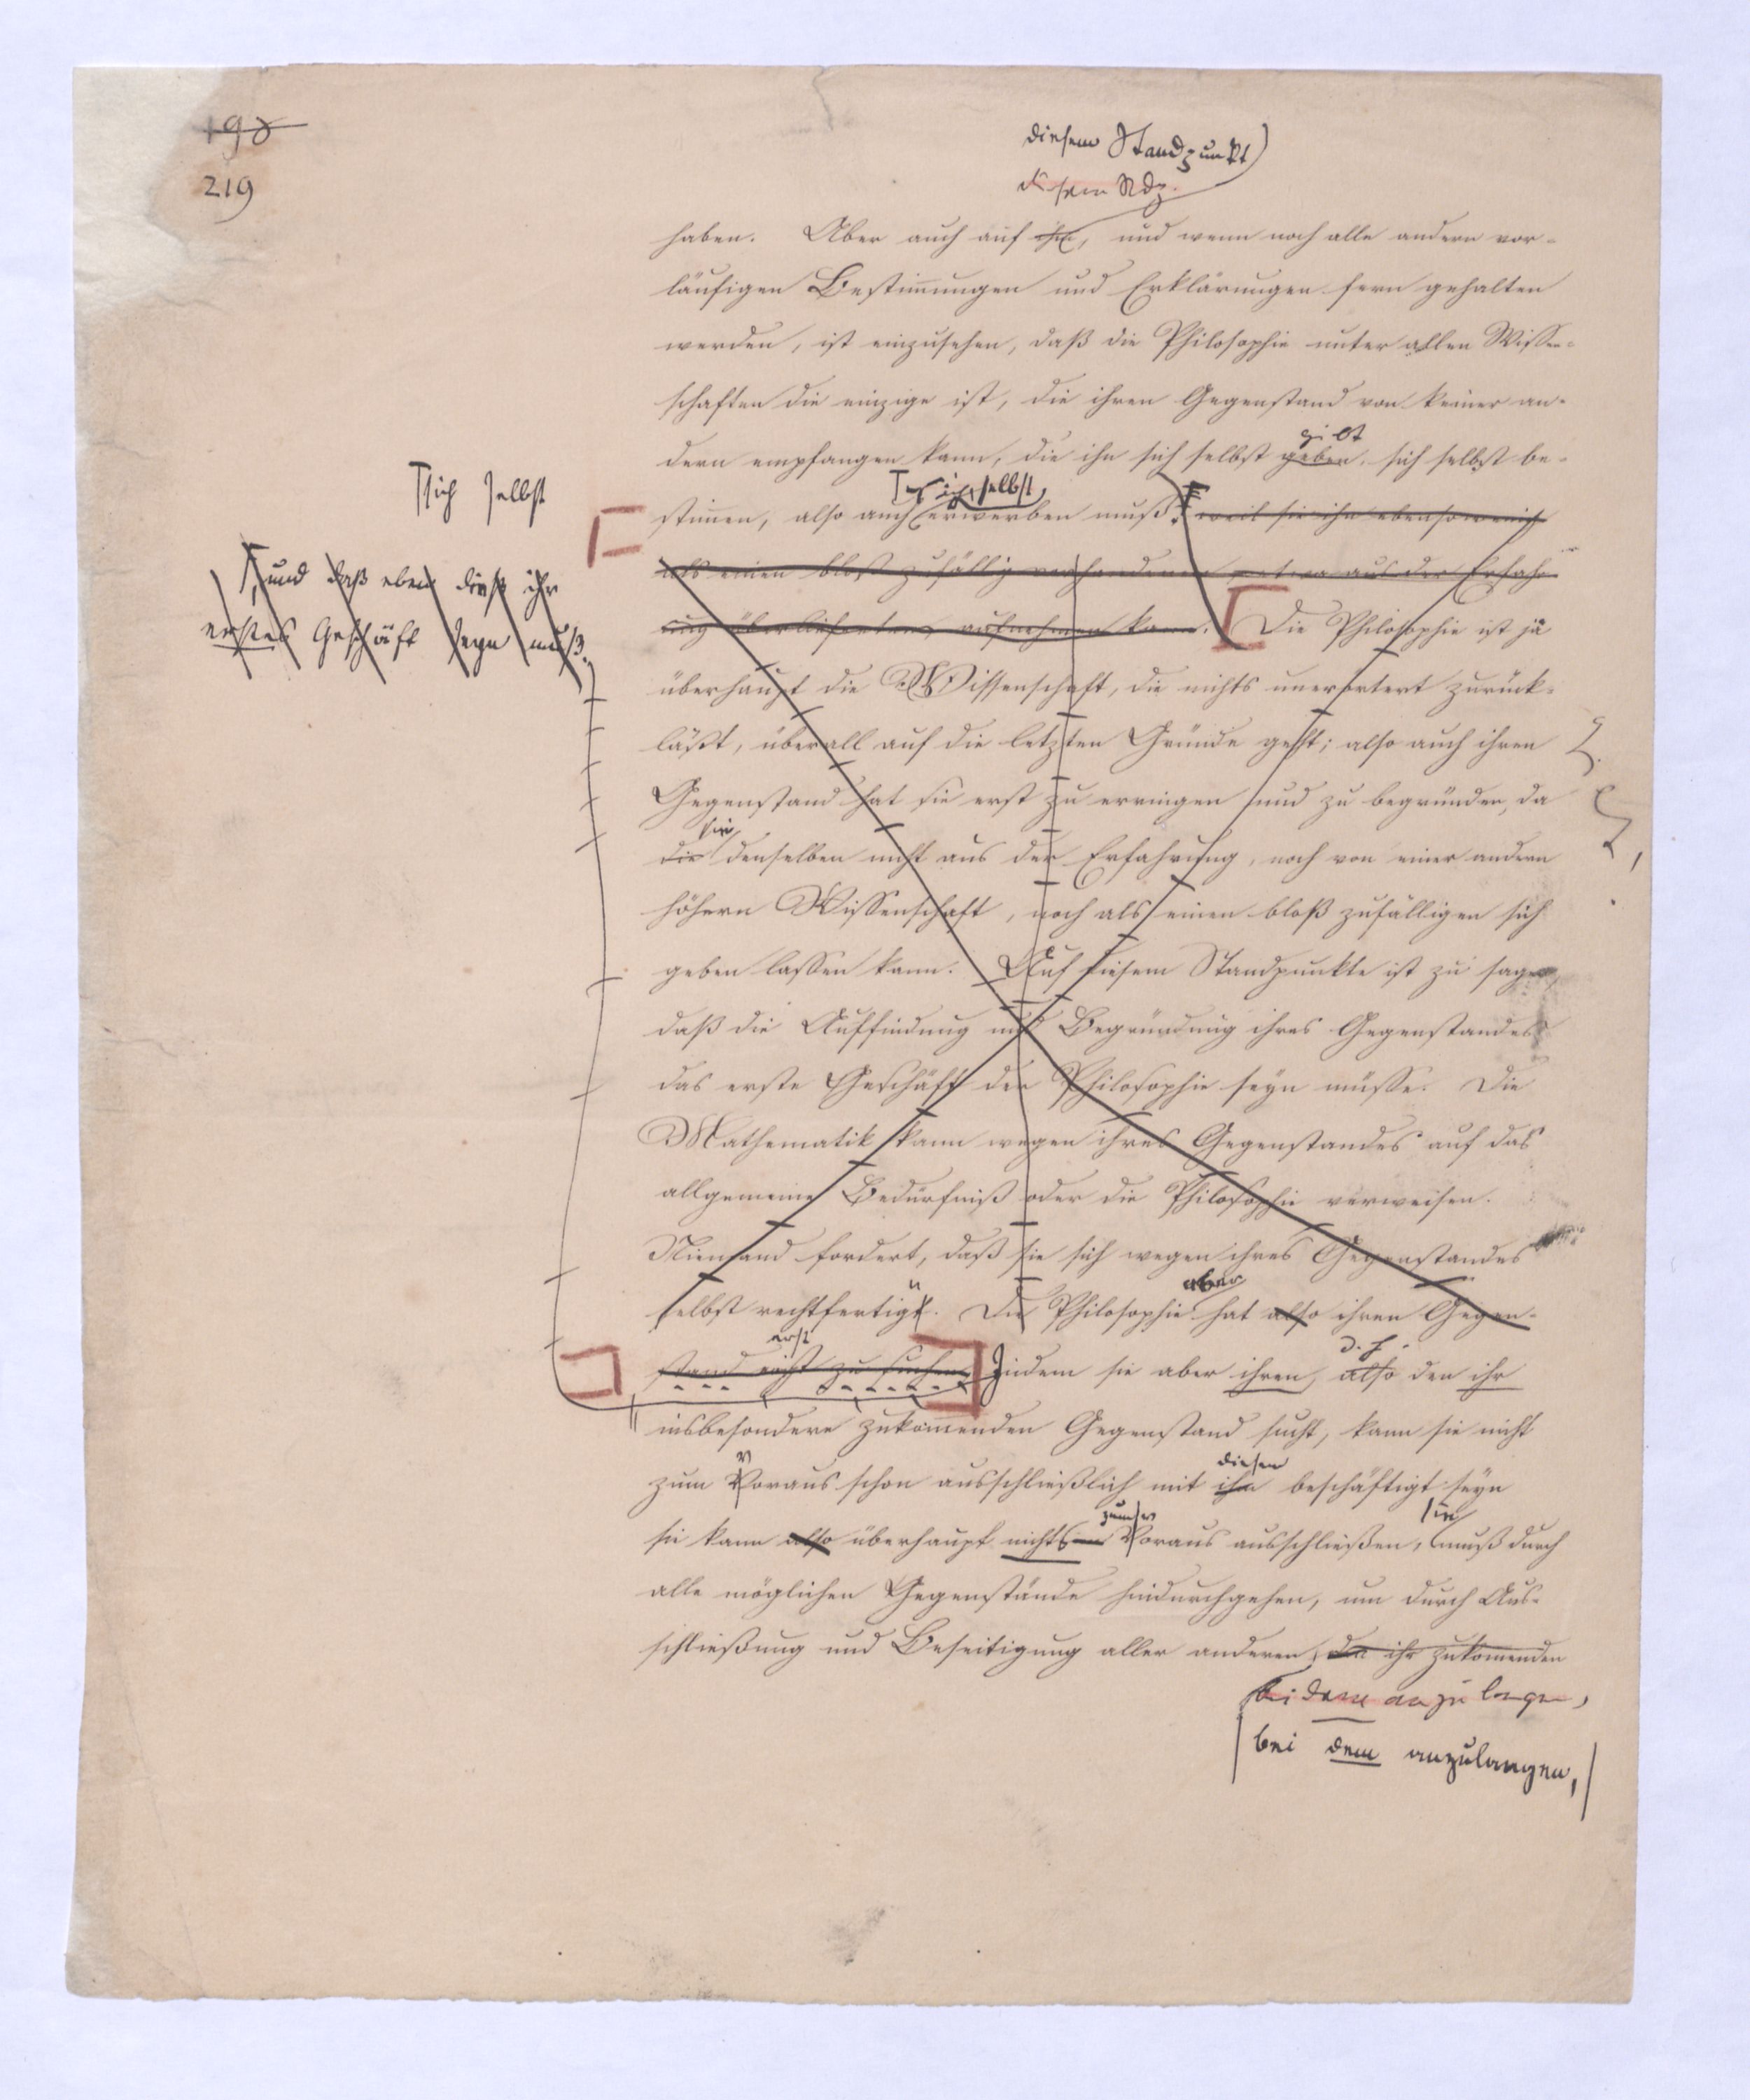 198
219
diesem Standpunkt
diesem Stdp.
haben. Aber auch auf ihm, und wenn noch alle andern vor-
läufigen Bestim̄ungen und Erklärungen fern gehalten
werden, ist einzusehen, daß die Philosophie unter allen Wissen-
schaften die einzige ist, die ihren Gegenstand von keiner an-
gibt
dern empfangen kann, die ihn sich selbst geben, sich selbst be-
sich selbst
sich selbst
stim̄en, also auch erwerben muß, weil sie ihn ebensowenig
als einen bloß zufällig vorhandenen, etwa aus der Erfah-
und daß eben dieß ihr
erstes Geschäft seyn muß.
rung überlieferten, aufnehmen kann. Die Philosophie ist ja
überhaupt die Wissenschaft, die nichts unerörtert zurück-
läßt, überall auf die letzten Gründe geht; also auch ihren
Gegenstand hat sie erst zu erringen und zu begründen, da
sie
die denselben nicht aus der Erfahrung, noch von einer andern
höhern Wissenschaft, noch als einen bloß zufälligen sich
geben lassen kann. Auf diesem Standpunkte ist zu sagen,
daß die Auffindung und Begründung ihres Gegenstandes
das erste Geschäft der Philosophie seyn müsse. Die
Mathematik kann wegen ihres Gegenstandes auf das
allgemeine Bedürfniß oder die Philosophie verweisen.
Niemand fordert, daß sie sich wegen ihres Gegenstandes
aber
selbst rechtfertige. Die Philosophie hat also ihren Gegen-
erst d. h.
stand nicht zu suchen, indem sie aber ihren, also den ihr
insbesondere zukom̄enden Gegenstand sucht, kann sie nicht
v diesem
zum Voraus schon ausschließlich mit ihm beschäftigt seyn
zum v sie
sie kann also überhaupt nichts im Voraus ausschließen, muß durch
alle möglichen Gegenstände hindurchgehen, um durch Aus-
schließung und Beseitigung aller anderen, den ihr zukom̄enden
bei dem anzulangen,
bei dem anzulangen,